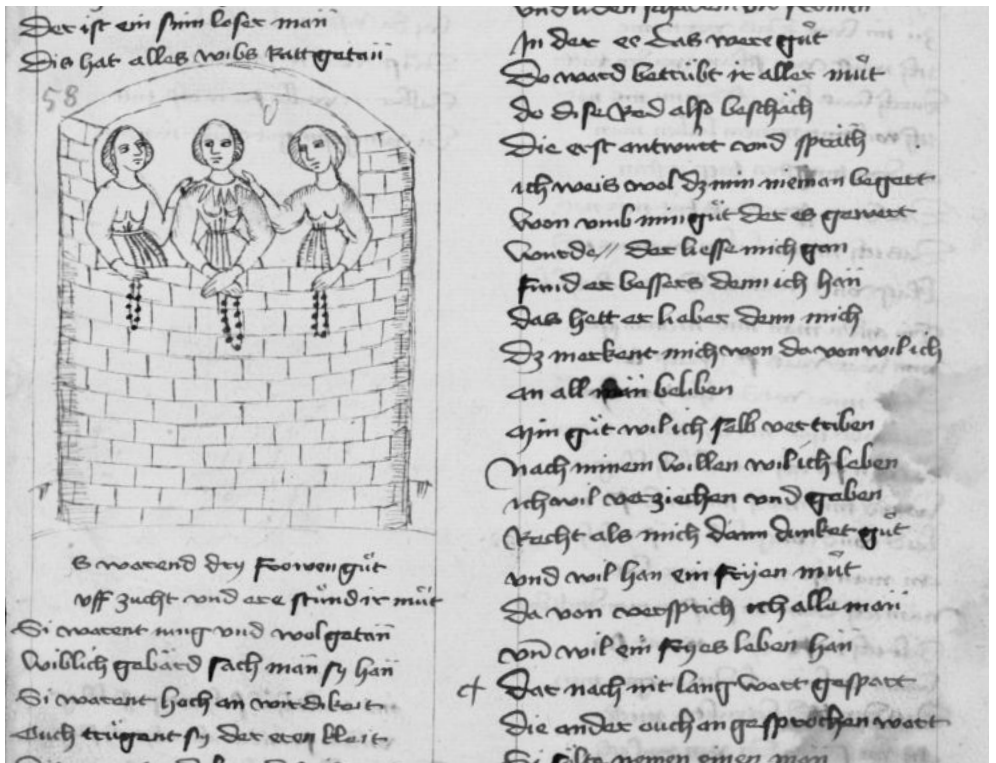 Der ist ein sinnloser man
Dis hat alles wibs Ratt getan
58
S warend dry frowen gůt
Uff zucht und ere stůnd ir můt
Si warent iung vnd wol getan
Wiblich gebärd sach man sy han
Si warent hoch an wirdikeit
Ouch trůgent sy der eren kleit
In der ee das were gůt
Do ward betrůbt ir aller můt
do dise Red also beschäch
Die erst antwurt vnd spräch
ich weis wol dz min nieman begert
Won vmb min gůt der es gewert
Wurde // der liesse mich gan
fund er bessers denn ich han
das hett er lieber denn mich
Dz merkent mich won da von wil ich
an all man beliben
Min gůt wil ich selb vertriben
Nach minem willen wil ich leben
ich wil verziechen vnd geben
Recht als mich dann dunket gůt
vnd wil han ein fryen můt
Da von versprich ich alle man
vn̄ wil ein fryes leben han
Dar nach nit lang wart gespart
die ander ouch an gesprochen wart
Si sölte nemen einen man